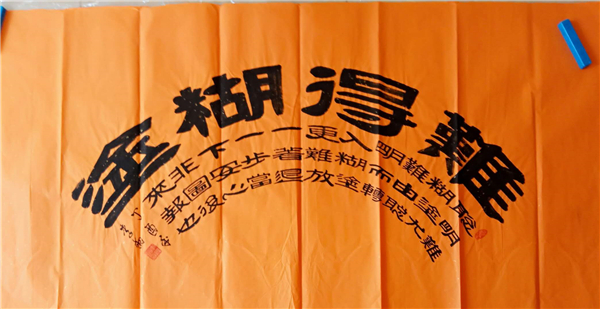 難得糊塗
聰明難
糊塗尤
難由聰
明而轉
入糊塗
更難放
一著退
一步當
下安心
非圖後
來報也
丁酉